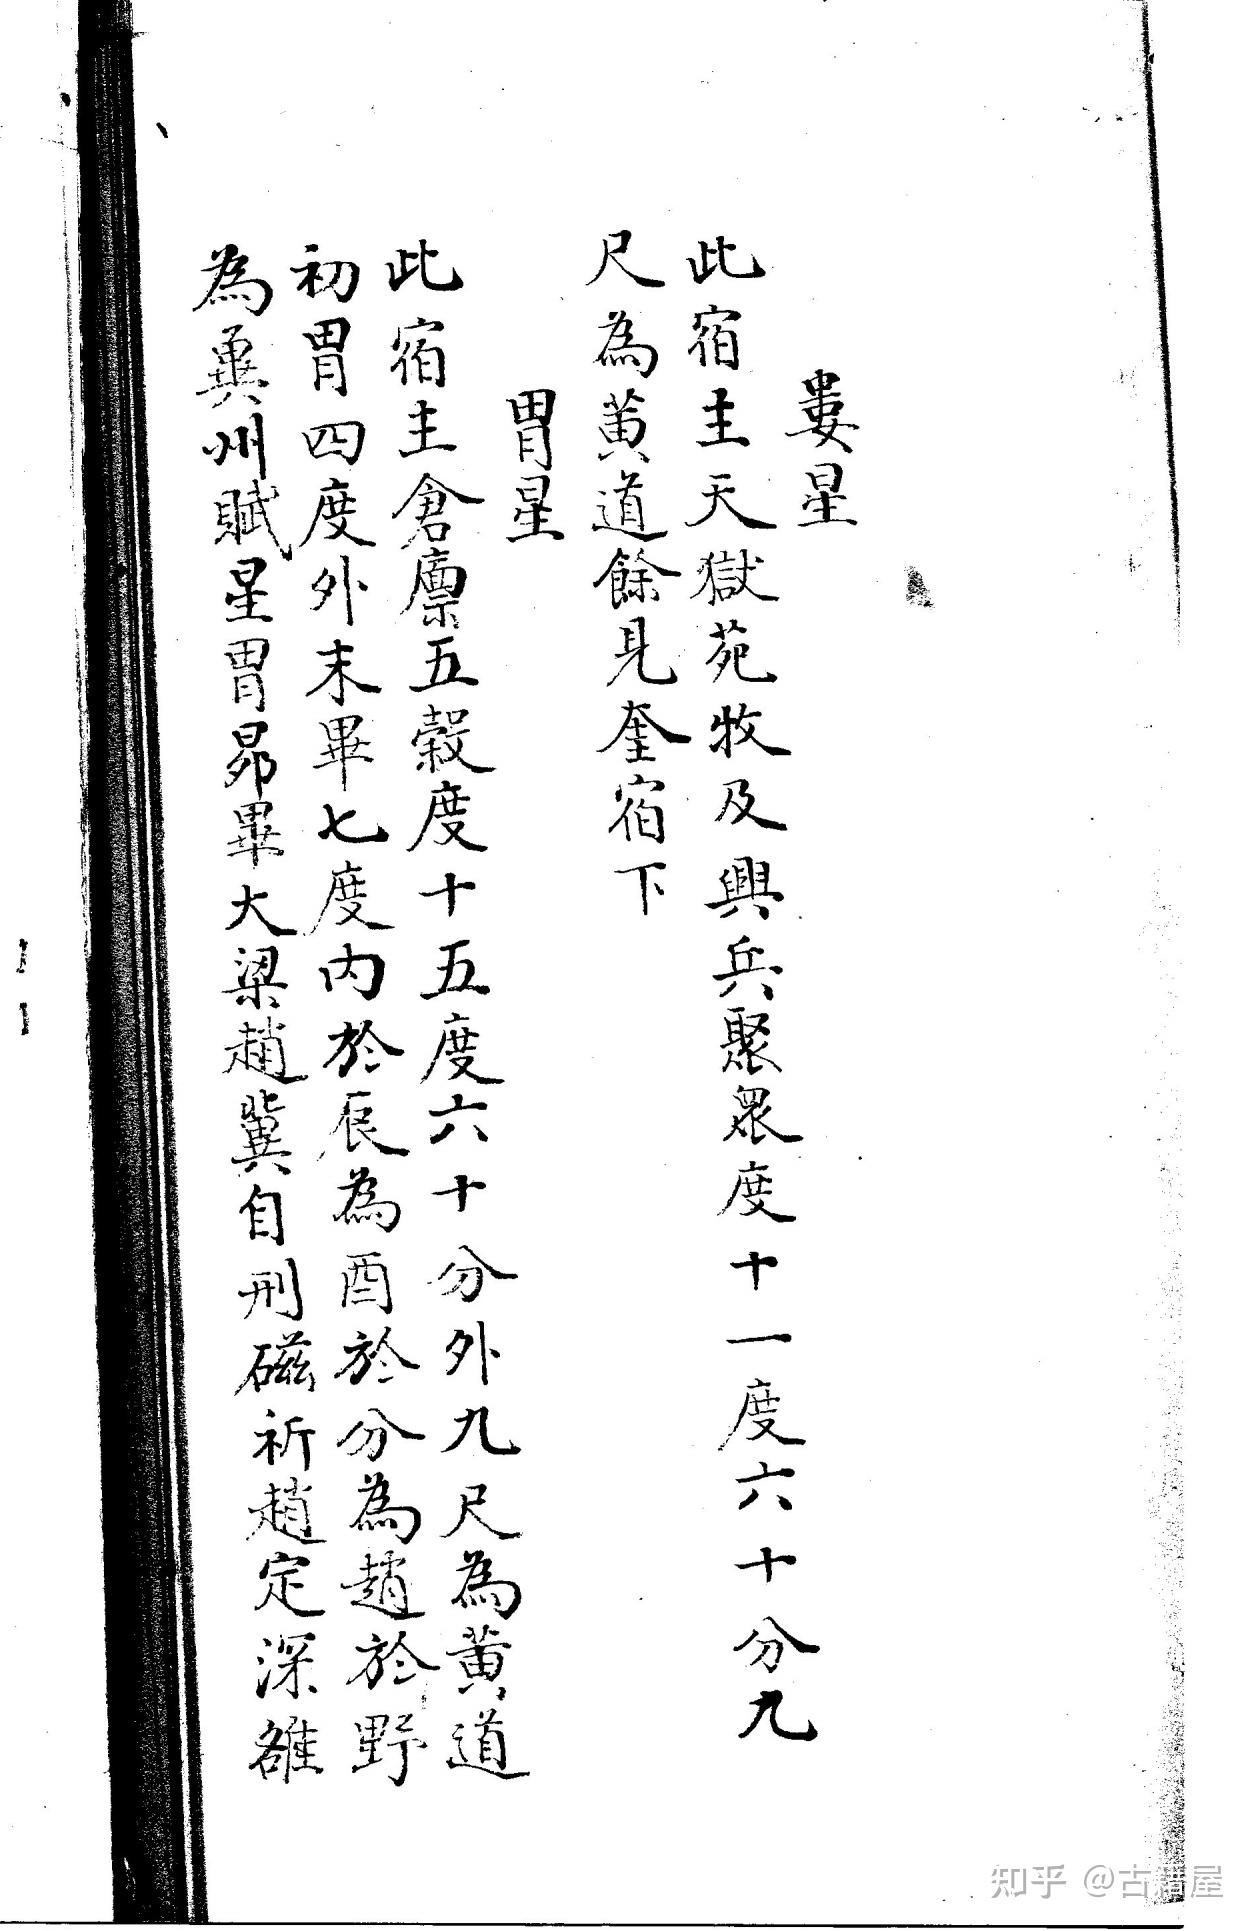 婁星
此宿主天獄苑牧及興兵聚眾度十一度六十分九
尺為黃道餘見奎宿下
胃星
此宿主倉廪五穀度十五度六十分外九尺為黃道
初胃四度外末畢七度內於辰為酉於分為趙於野
為兾州賦星胃昴畢大梁趙冀自刑磁祈趙定深雒
知乎 @古籍屋